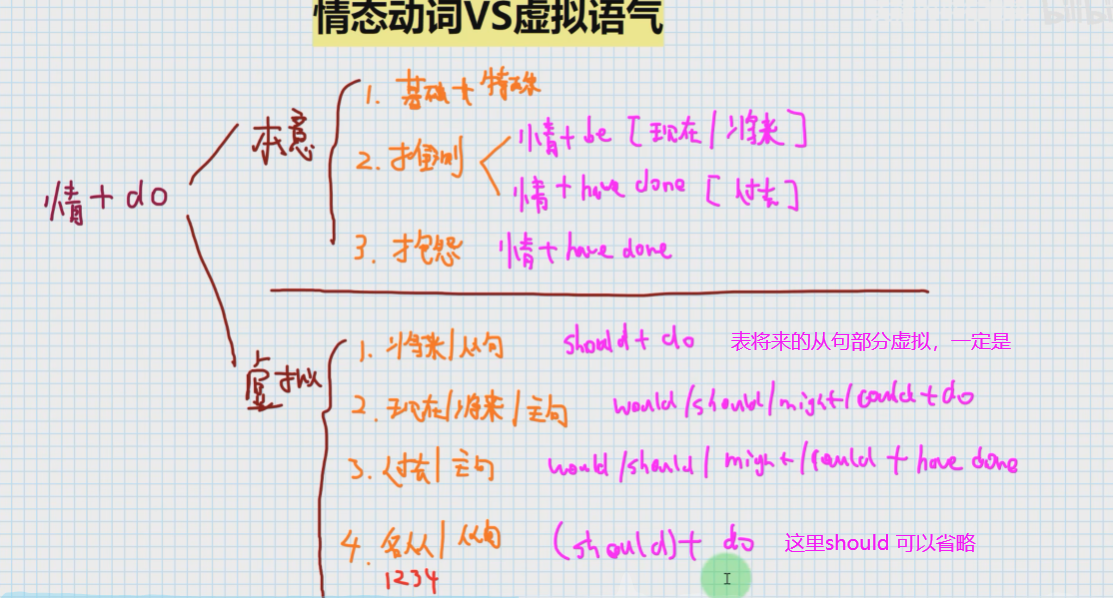 情态动词VS虚拟语气
情+do
本意
1. 基础+特殊
2. 推测
情+be [现在/将来]
情+have done [过去]
3. 抱怨 情+have done
虚拟
1. 将来/从句 should+do 表将来的从句部分虚拟，一定是
2. 现在/将来/主句 would/should/might/could+do
3. 过去/主句 would/should/might/could+have done
4. 名从/从句 (should)+do 这里should 可以省略
1234